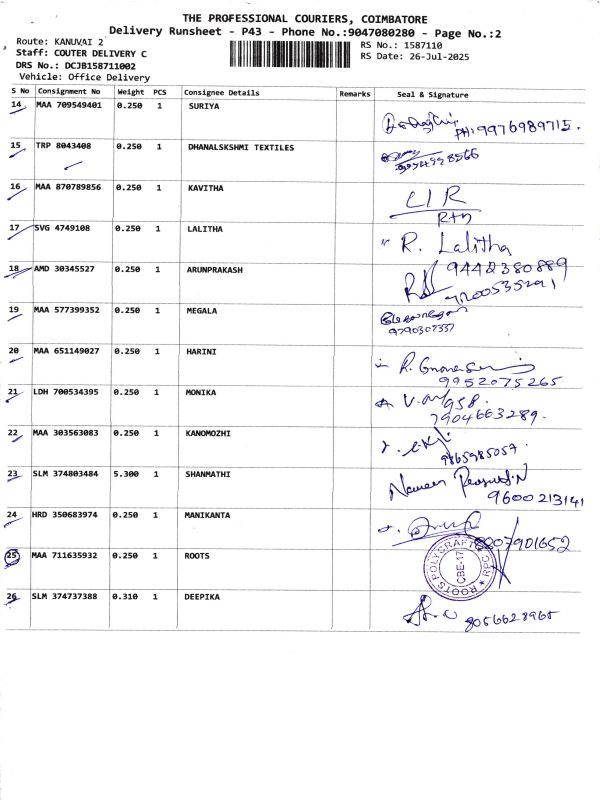 THE PROFESSIONAL COURIERS, COIMBATORE
Delivery Runsheet - P43 - Phone No.:9047080280 - Page No.:2
Route: KANUVAI 2
RS No.: 1587110
Staff: COUTER DELIVERY C
RS Date: 26-Jul-2025
DRS No.: DCJB158711002
Vehicle: Office Delivery
S No Consignment No Weight PCS Consignee Details Remarks Seal & Signature
14 MAA 709549401 0.250 1 SURIYA
PH: 9976989715.
15 TRP 8043408 0.250 1 DHANALSKSHMI TEXTILES
16 MAA 870789856 0.250 1 KAVITHA
CIR
Rtn
17 SVG 4749108 0.250 1 LALITHA
R. Lalitha
9442380889
18 AMD 30345527 0.250 1 ARUNPRAKASH
9200535291
19 MAA 577399352 0.250 1 MEGALA
9790307337
20 MAA 651149027 0.250 1 HARINI
9952075265
21 LDH 700534395 0.250 1 MONIKA
7904663289.
22 MAA 303563083 0.250 1 KANOMOZHI
9865985057.
23 SLM 374803484 5.300 1 SHANMATHI
9600213141
24 HRD 350683974 0.250 1 MANIKANTA
8207901652
25 MAA 711635932 0.250 1 ROOTS
ROOTS POLYCRAFT
CBE-17
RPC
26 SLM 374737388 0.310 1 DEEPIKA
8056628965